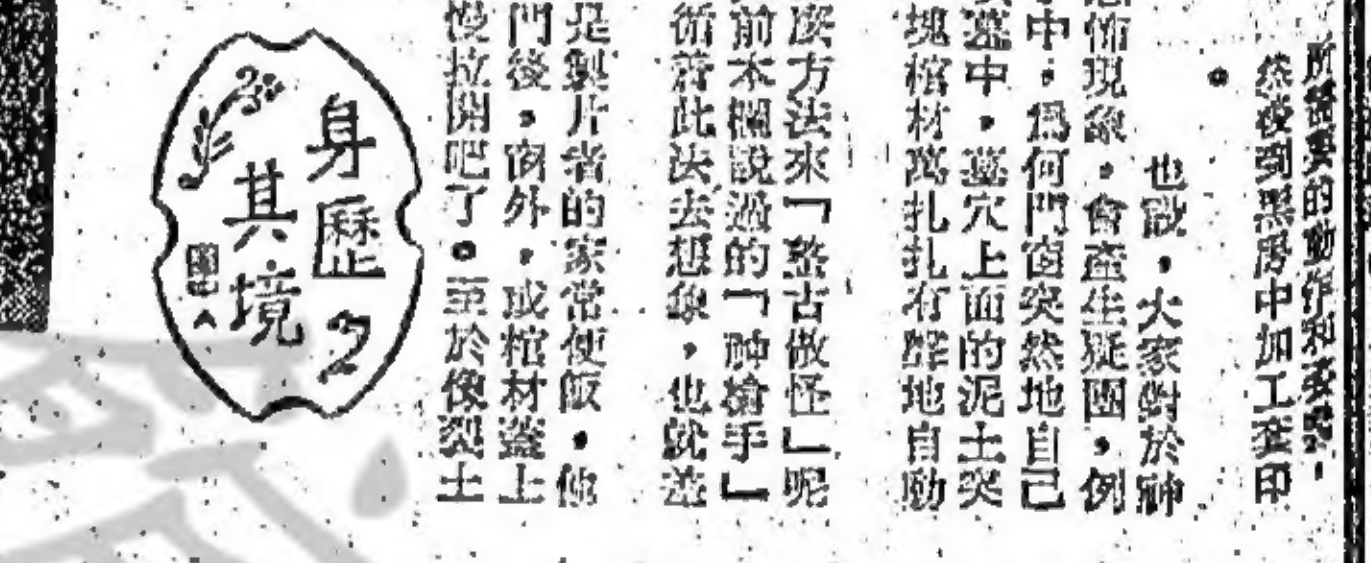 所需要的動作和表
然後到黑房中加工套印
。
也許,大家對於神
怖現象,會產生疑團,例
中,爲何門窗突然地自己
墓中,墓穴上面的泥土突
塊棺材萬扎扎有聲地自動
麽方法來「整古做怪」呢
前本欄說過的「神槍手」
循着此決去想象,也就差
是製片者的家常便飯,他
門後,窗外,或棺材蓋上
慢拉開吧了。至於像裂土
身歷
其境
人